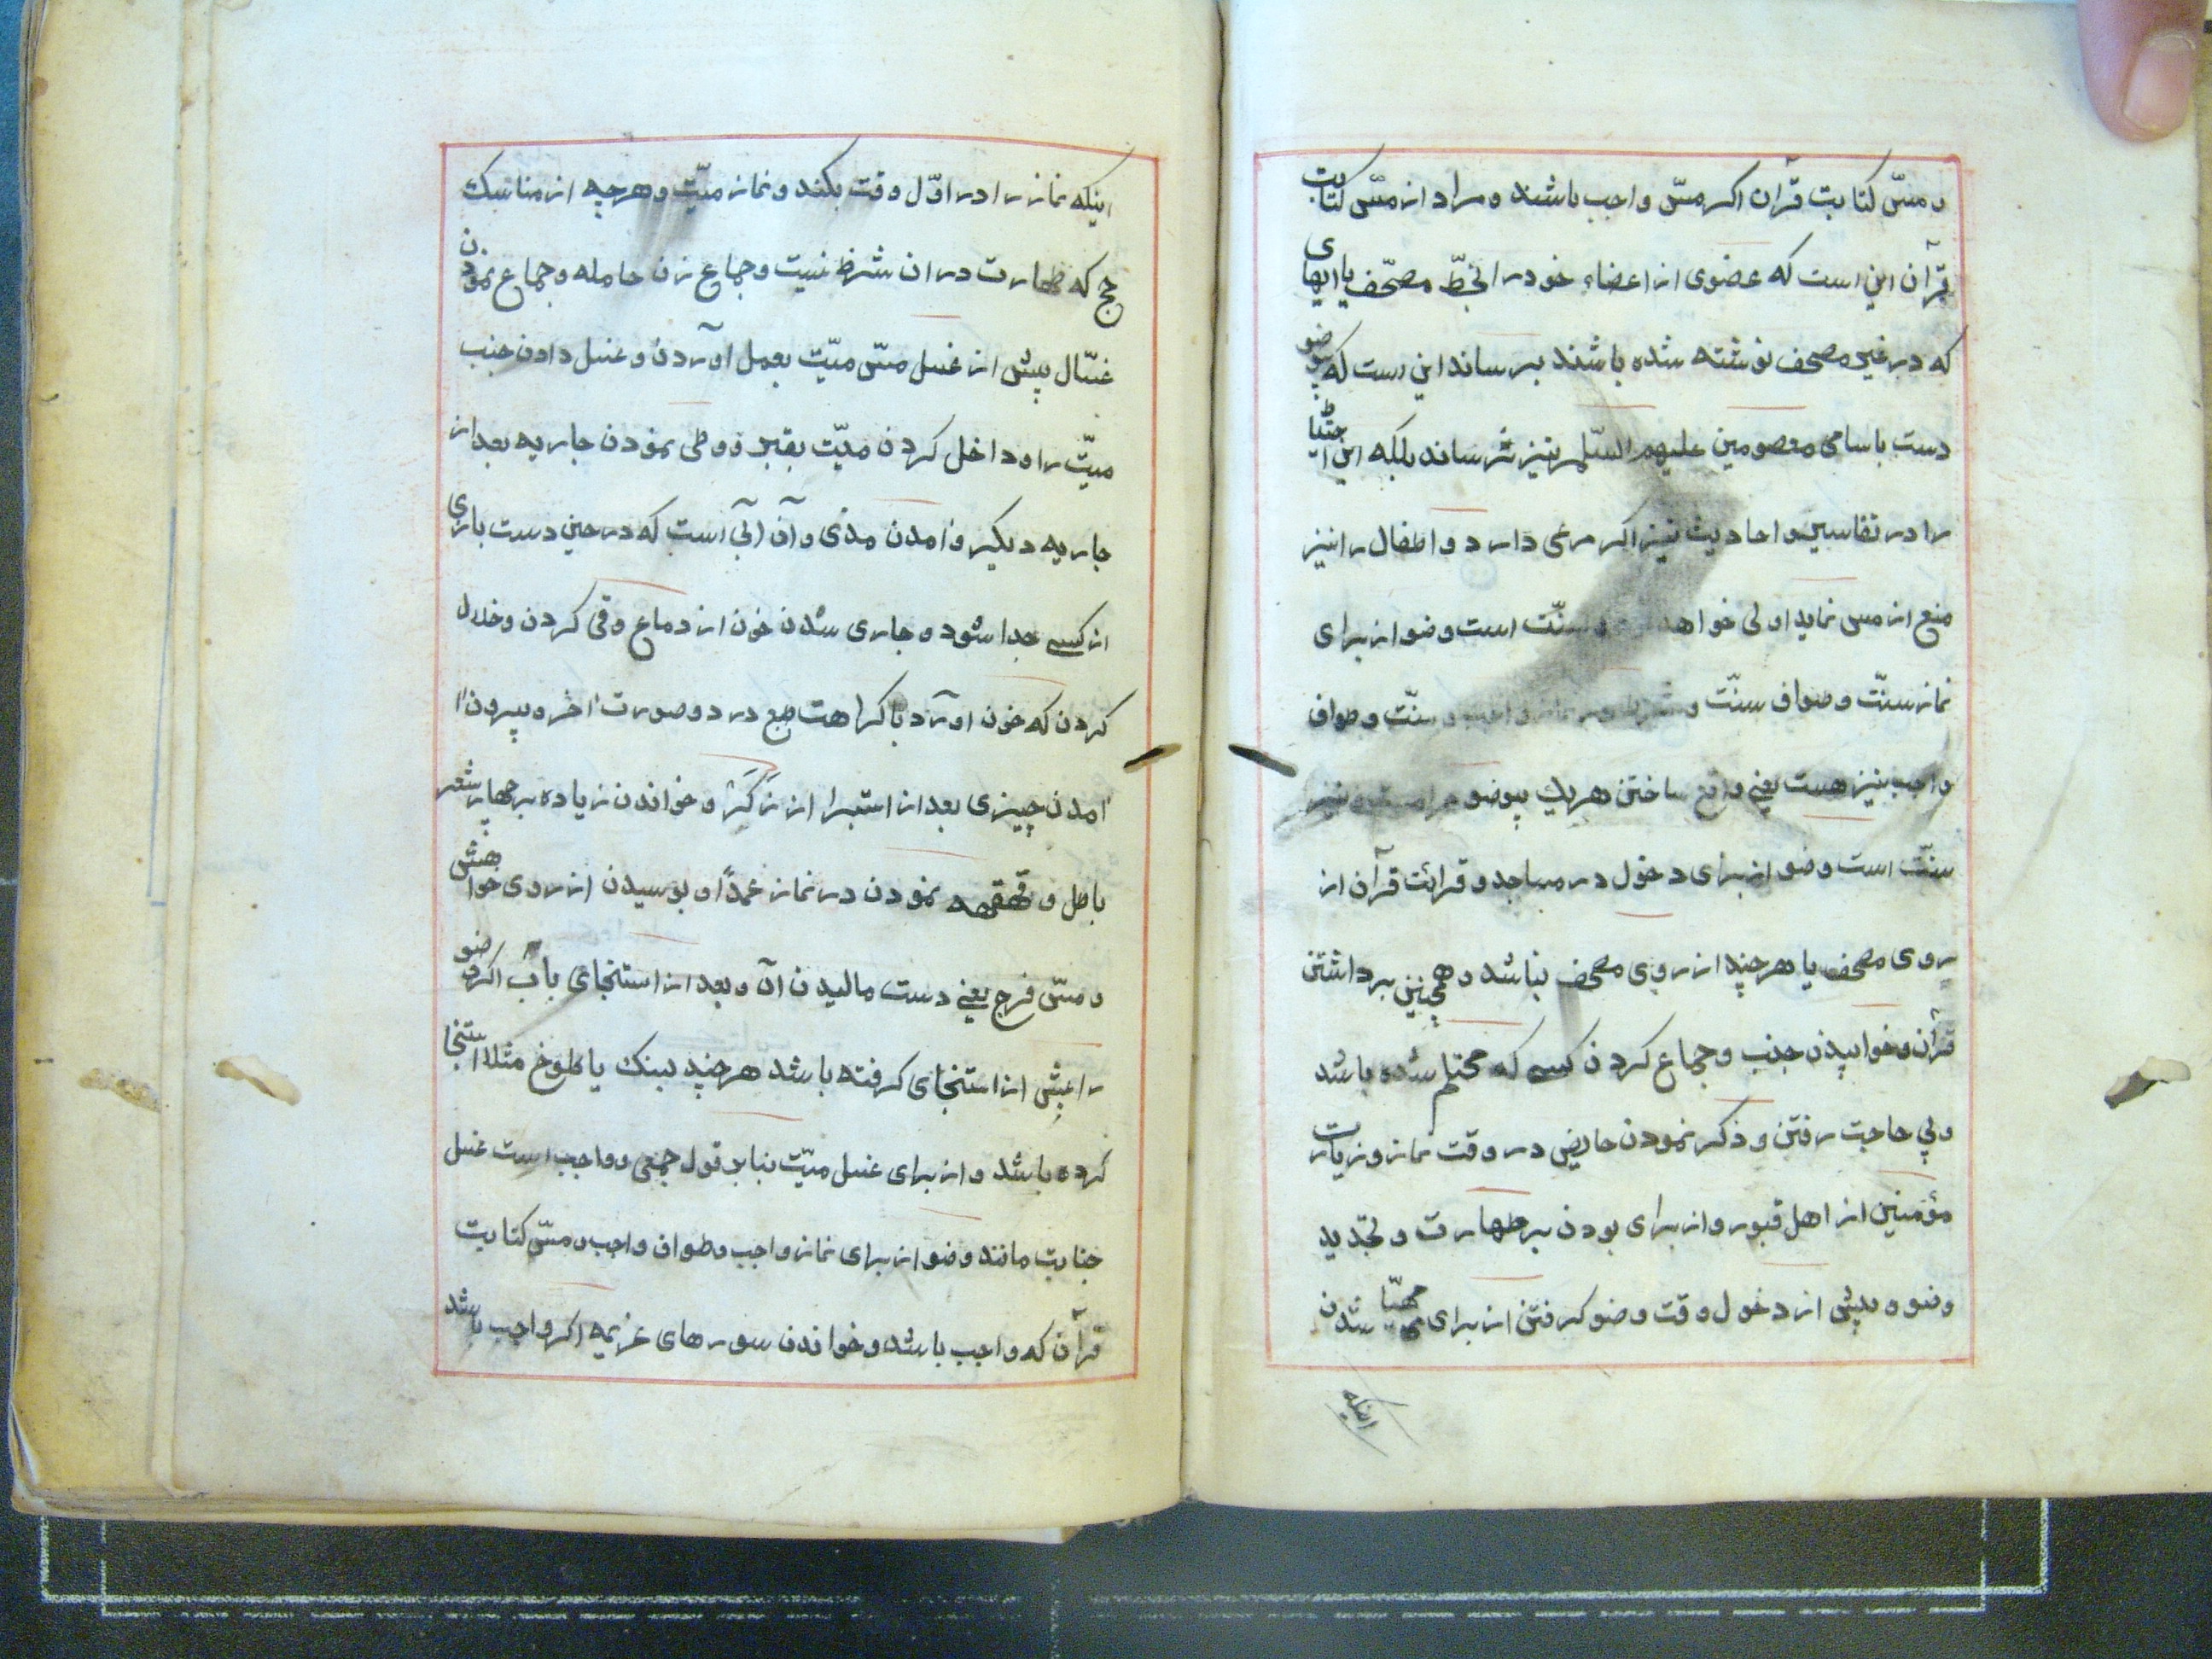 و مسّ کتابت قرآن اکر مسّ واجب باشد و مراد از مسّ کتابت
قرآن این است که عضوی از اعضاء خود را بخطّ مصحّف یا ایهای
که در غیر مصحف نوشته شده باشند برساند این است که بیوضو
دست باسامی معصومین علیهم السّلم نیز نرساند بلکه این احتیاط
را در تفاسیر و احادیث نیز اکر مرعی دارد و اطفال را نیز
منع از مس نماید اولی خواهد و سنّت است وضو از برای
نماز سنّت و طواف سنّت و در نماز واجب و سنّت و طواف
واجب نیز هست یعنی واقع ساختن هریک بیوضو نیز
سنّت است وضو از برای دخول در مساجد و قرائت قرآن از
روی مصحف یا هر چند از روی مصحف نباشد و همچنین برداشتن
قرآن و خوابیدن جنب و جماع کردن کسی که محتلم شده باشد
و پی حاجت رفتن و ذکر نمودن حایض در وقت نماز و زیارت
مؤمنین از اهل قبور و از برای بودن بر طهارت و تجدید
وضو و پیش از دخول وقت وضو کرفتن از برای مهیّا شدن
اینکه
اینکه نماز را در اوّل وقت بکند و نماز میّت و هرچه از مناسک
حج که طهارت در ان شرط نیست و جماع زن حامله و جماع نمودن
غسّال پیش از غسل مسّ میّت بعمل اوردن و غسل دادن جنب
میّت را و داخل کردن میّت بقبر و وطی نمودن جاریه بعد از
جاریه دیکر و امدن مذی و آن آبی است که در حین دست بازی
از کسی جدا شود و جاری شدن خون از دماغ و قی کردن و خلال
کردن که خون اورد با کراهت طبع در دو صورت اخر و بیرون
امدن چیزی بعد از استبرا از ذکر و خواندن زیاده بر چهار شعر
باطل و قهقهه نمودن در نماز عمداً و بوسیدن از روی خواهش
و مسّ فرج یعنی دست مالیدن آن و بعد از استنجای بآب اکر وضو
را پیش از استنجای کرفته باشد هر چند بسنک یا کلوخ مثلا استنجا
کرده باشد و از برای غسل میّت بنابر قول جمعی و واجب است غسل
جنابت مانند وضو از برای نماز واجب و طواف واجب و مسّ کتابت
قرآن که واجب باشد و خواندن سورهای عزیمه اکر واجب باشد